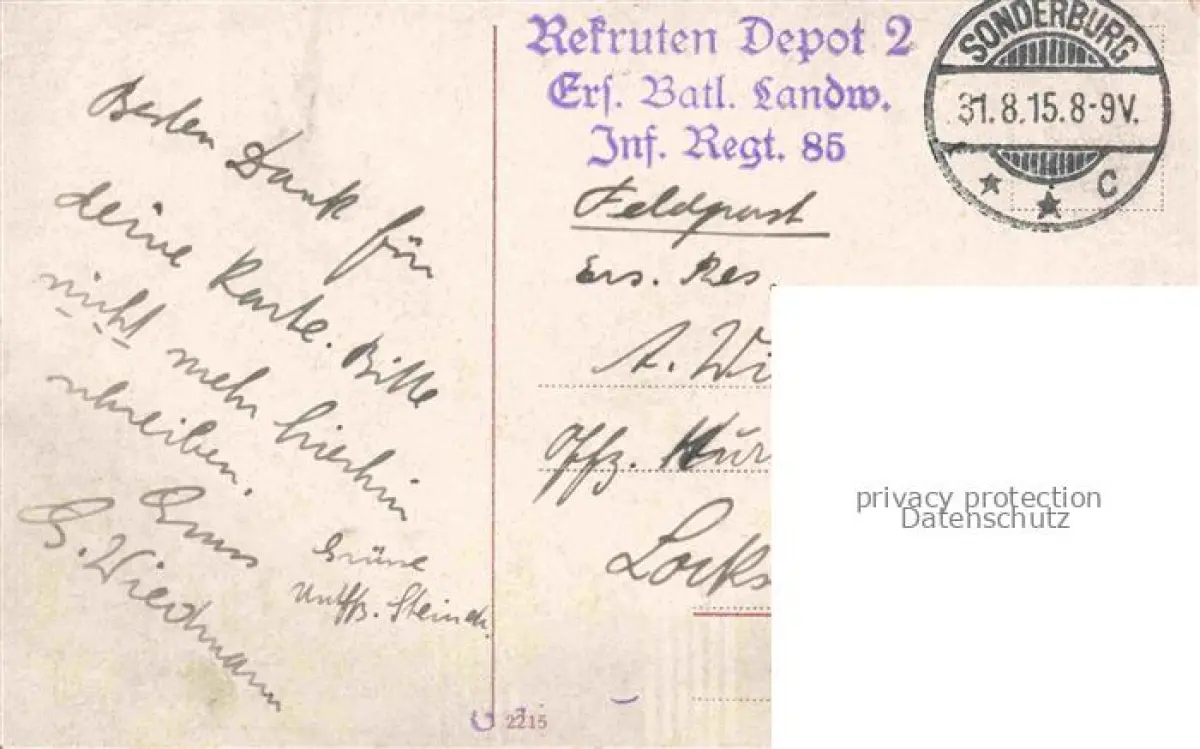 Besten Dank für
deine Karte. Bitte
nicht mehr hierhin
schreiben.
Gruss
G. Wiedmann
Grüsse
Untffz.
Rekruten Depot 2
Ers. Batl. Landw.
Inf. Regt. 85
SONDERBURG
31.8.15.8-9V.
C
Feldpost
Ers. Res.
A. Wi
Offz.
Locks
privacy protection
Datenschutz
2215